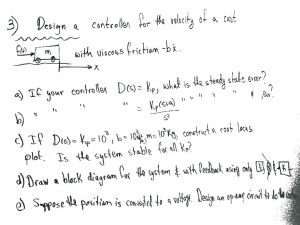 3) Design a controller for the velocity of a cart
f(t) m with viscous friction -bẋ.
x
a) If your controller D(s) = Kp, what is the steady state error?
b) " " " = Kp(s+a) " " " " "
s²
c) If D(s) = Kp = 10², b = m = construct a root locus
plot. Is the system stable for all Kp?
d) Draw a block diagram for the system & with feedback using only
e) Suppose the position is converted to a voltage. Design an op-amp circuit to do the